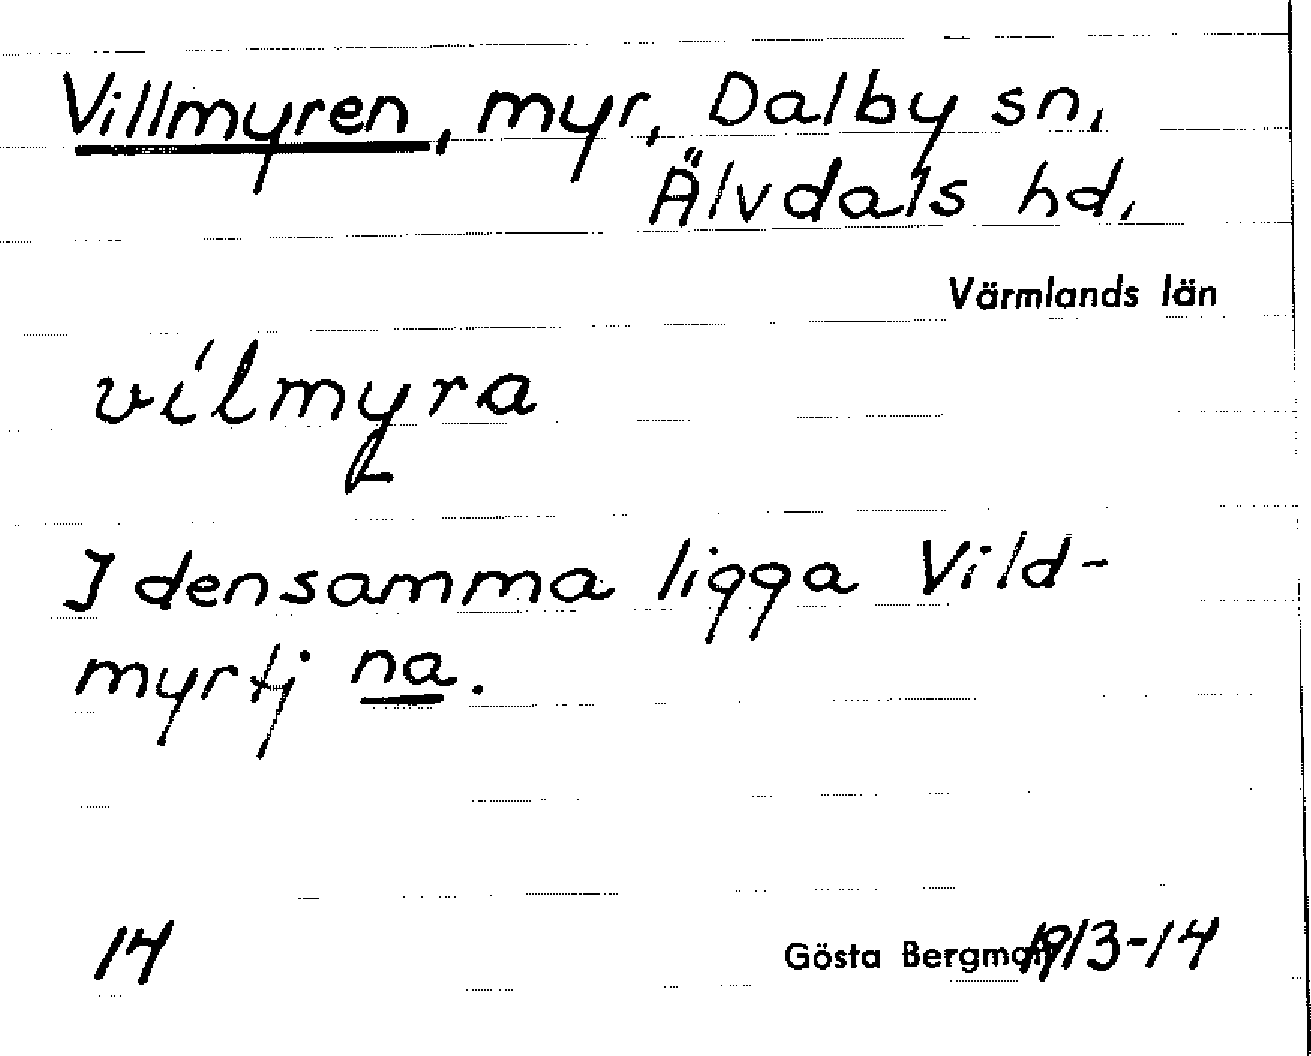 Villmyren, myr, Dalby sn,
Älvdals hd,
Värmlands län
vílmyra
I densamma ligga Vild-
myrtj na.
14
Gösta Bergman 1913-14